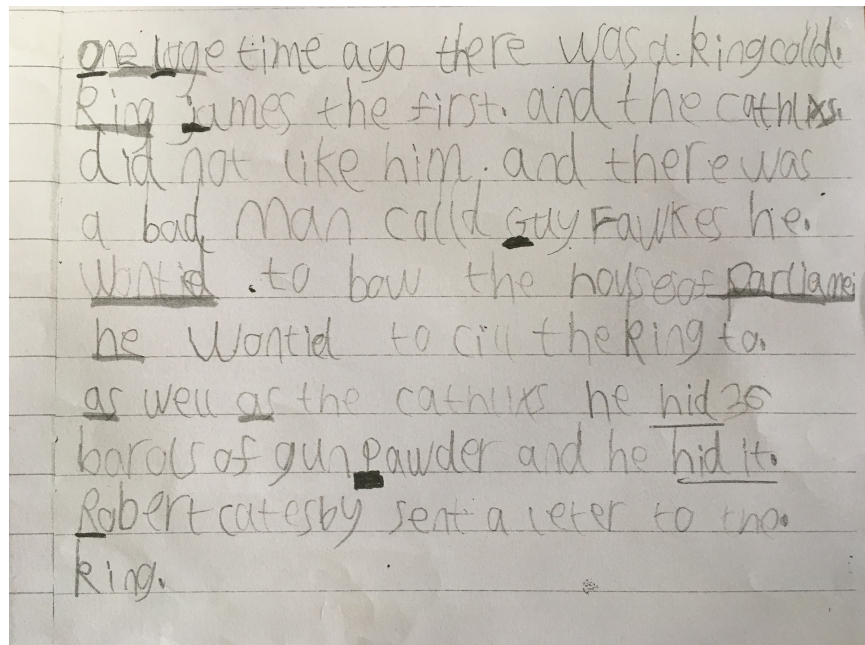 one loge time ago there was a king calld.
King james the first. and the cathlixs.
did not like him. and there was
a bad man calld Guy Fawkes he.
Wontid .to bow the houses of Parliamei
he Wontid to cill the king to.
as well as the cathlixs he hid 36
barols of gunpawder and he hid it.
Robert catesby sent a leter to the.
king.